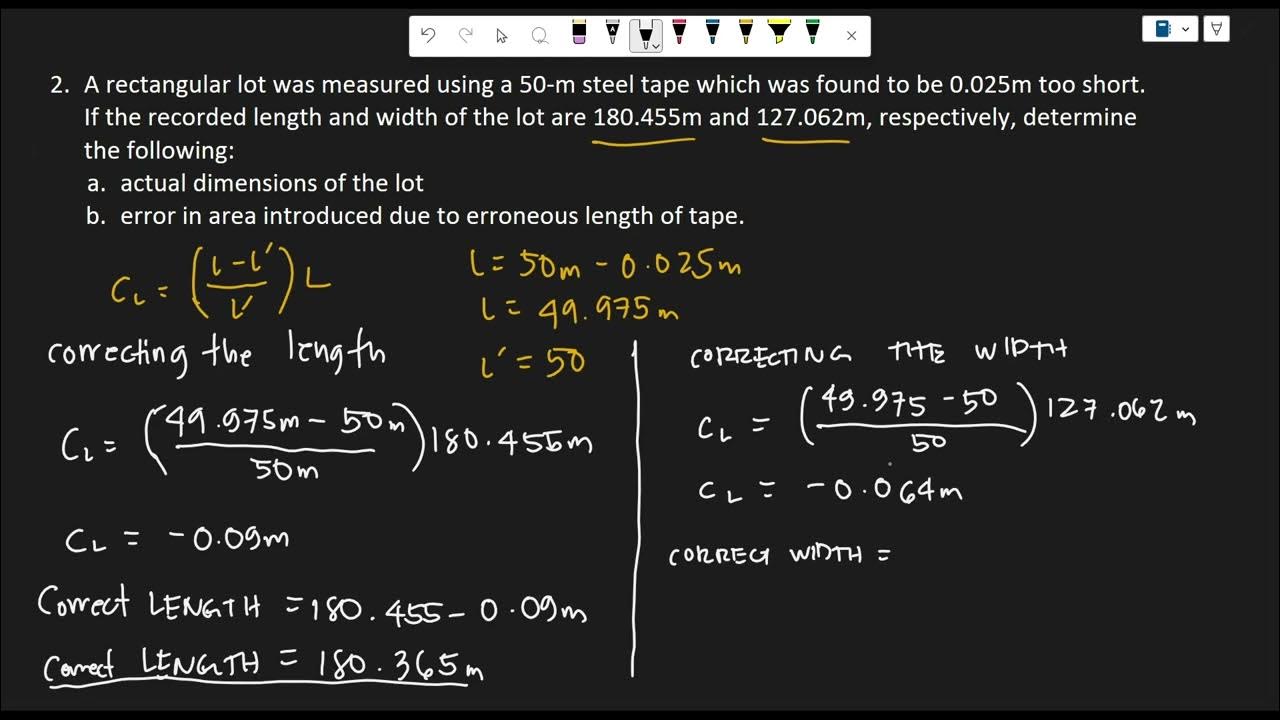 2. A rectangular lot was measured using a 50-m steel tape which was found to be 0.025m too short.
If the recorded length and width of the lot are 180.455m and 127.062m, respectively, determine
the following:
a. actual dimensions of the lot
b. error in area introduced due to erroneous length of tape.
C_L = ((l - l') / l') L
l = 50m - 0.025m
l = 49.975m
l' = 50
correcting the length
C_L = ((49.975m - 50m) / 50m) 180.455m
C_L = -0.09m
Correct LENGTH = 180.455 - 0.09m
Correct LENGTH = 180.365m
CORRECTING THE WIDTH
C_L = ((49.975 - 50) / 50) 127.062m
C_L = -0.064m
CORRECT WIDTH =